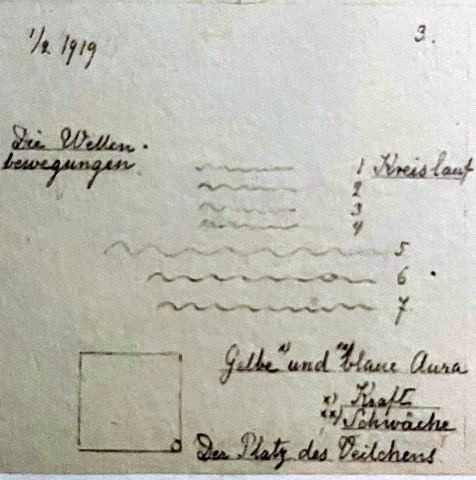 1/2 1919
3.
Die Wellen-
bewegungen
1 Kreislauf
2
3
4
5
6
7
Gelbe x) und xx) blaue Aura
x) Kraft
xx) Schwäche
Der Platz des Veilchens